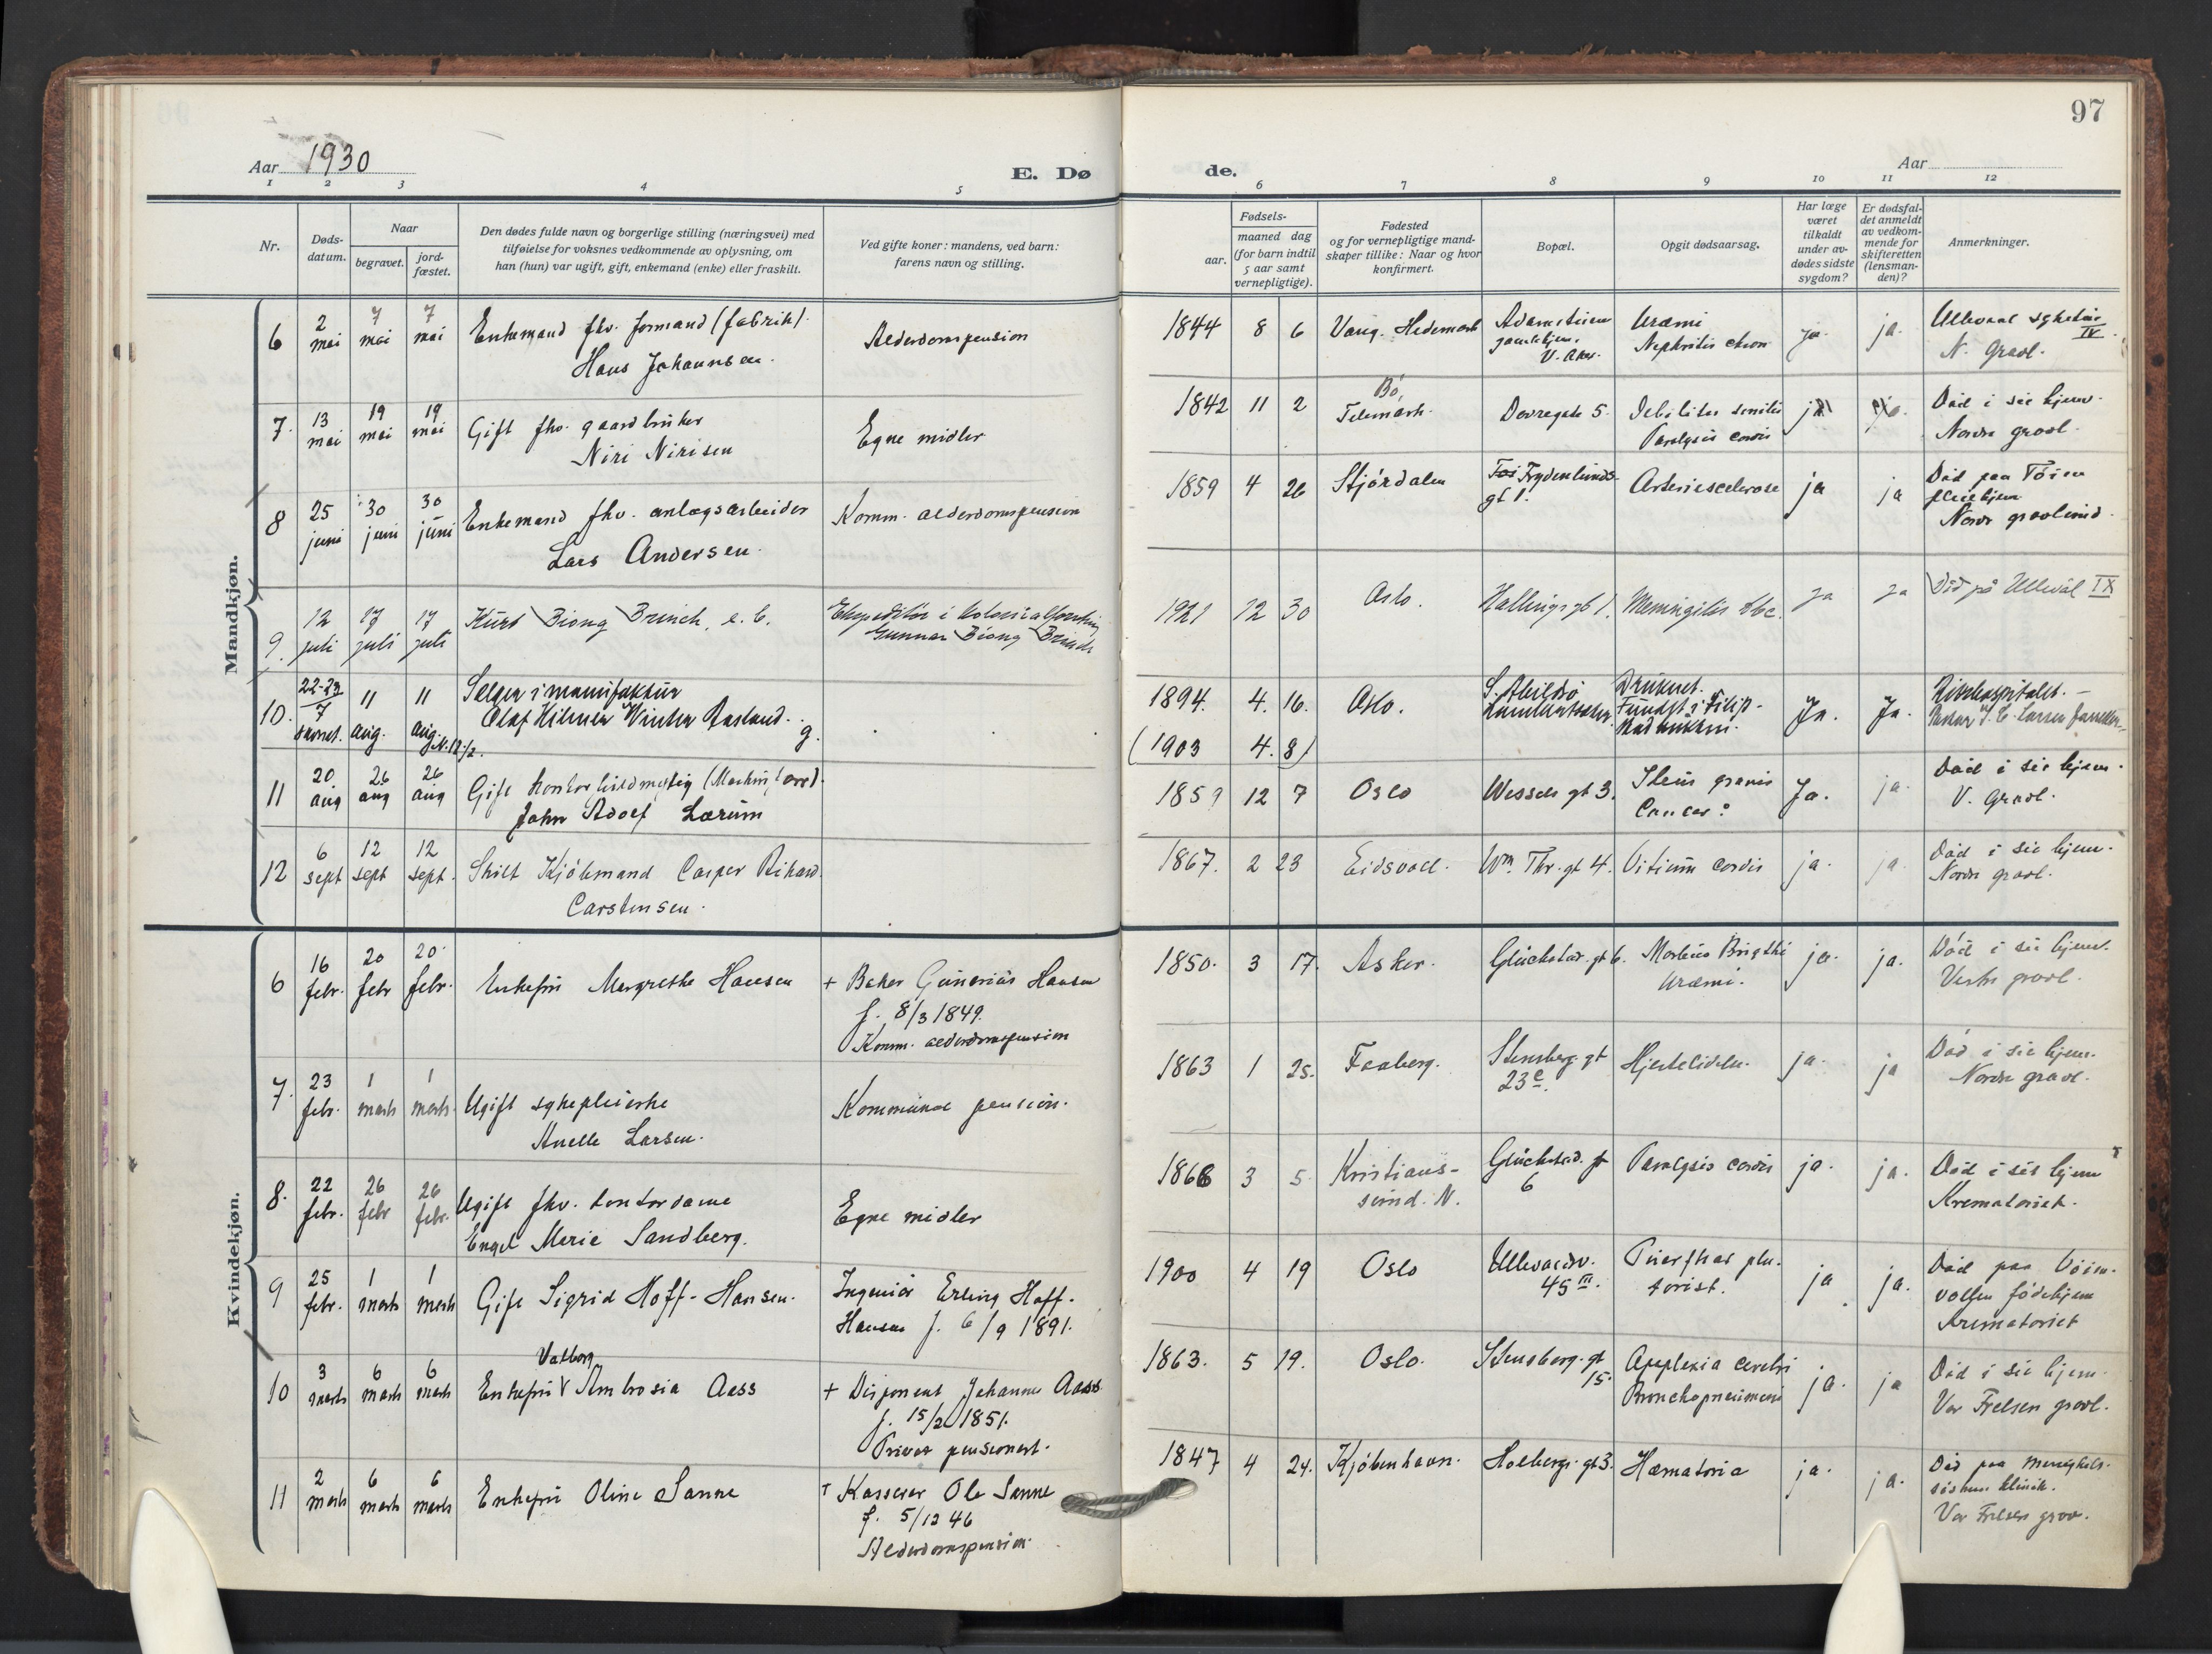 97
Aar 1930
E. Dø
de.
Aar
1 2 3 4 5 6 7 8 9 10 11 12
Nr.
Døds-
datum.
Naar
begravet.
jord-
fæstet.
Den dødes fulde navn og borgerlige stilling (næringsvei) med
tilføielse for voksnes vedkommende av oplysning, om
han (hun) var ugift, gift, enkemand (enke) eller fraskilt.
Ved gifte koner: mandens, ved barn:
farens navn og stilling.
Fødsels-
aar.
maaned dag
(for barn indtil
5 aar samt
vernepligtige).
Fødested
og for vernepligtige mand-
skaper tillike: Naar og hvor
konfirmert.
Bopæl.
Opgit dødsaarsag.
Har læge
været
tilkaldt
under av-
dødes sidste
sygdom?
Er dødsfal-
det anmeldt
av vedkom-
mende for
skifteretten
(lensman-
den)?
Anmerkninger.
Mandkjøn.
6
2 mai
7 mai
7 mai
Enkemand fhv. formand (fabrik).
Hans Johannsen.
Alderdomspension
1844 8 6
Vang. Hedemark
gamlehjem.
V. Aker.
Uræmi
Nephritis chron
ja.
ja.
Ullevaal sykehus
IV.
N. Gravl.
7.
13 mai
19 mai
19 mai
Gift fhv. gaardbruker
Niri Nirisen
Egne midler
1842 11 2
Bö
Telemark.
Dovregate 5.
Debilitas senilis
Paralysis cordis
Död i sit hjem.
Nordre gravl.
8
25 juni
30 juni
30 juni
Enkemand fhv. anlægsarbeider
Lars Andersen.
Komm. alderdomspension
1859 4 26
Stjördalen
Frydenlunds-
gt 1.
Arteriesclerose
ja
ja
Död paa Töien
pleiehjem
Nordr gravlund.
9.
12 juli
17 juli
17 juli
Kurt Biong Brinch, e. b.
Ekspeditör i
Gunnar Biong Brinch
1921 12 30
Oslo.
Hallings gt 1.
Meningitis tbc.
ja
ja
Död på Ullevål IX
10.
22-23
7
11 aug.
11 aug.
Selger i manufaktur
Olaf Hilmar Winter Aasland. g.
1894. 4. 16.
(1903 4. 8)
Oslo.
Druknet.
Fundet i Filip-
stadbukten.
Ja.
Ja.
Rikshospitalet. –
11
20 aug
26 aug
26 aug
Gift
John Adolf Lærum
1859 12 7
Oslo
Wessels gt 3.
Ileus gravis
Cancer:
Ja.
ja.
Död i sit hjem.
V. Gravl.
12
6 sept
12 sept
12 sept.
Skilt Kjöbmand Casper Rikard
Carstensen.
1867. 2 23
Eidsvoll.
Wm. Thr. gt 4.
Vitium cordis
ja.
ja.
Död i sit hjem.
Nordre gravl.
Kvindekjøn.
6
16 febr.
20 febr
20 febr.
Enkefru Margrethe Hansen
+ Baker Gunerius Hansen
f. 8/3 1849.
Komm. alderdomspension
1850. 3 17.
Asker.
Glückstad. gt 6.
Morbus Brigthi
Uræmi.
ja.
ja.
Död i sit hjem.
Vestre gravl.
7.
23 febr.
1 marts
1 marts.
Ugift sykepleierske
Anelle Larsen.
Kommunal pension.
1863 1 25.
Faaberg.
Stensberg. gt
23 c.
Hjertelidelse.
ja.
ja
Död i sit hjem.
Nordre gravl.
8.
22 febr.
26 febr
26 febr.
Ugift fhv. kontordame
Engel Marie Sandberg.
Egne midler
1866 3 5.
Kristians-
sund. N.
Glückstad. gt
6
Paralysis cordis
ja.
ja.
Död i sit hjem
Krematoriet.
9
25 febr.
1 marts
1 marts
Gift Sigrid Hoff-Hansen.
Ingeniör Erling Hoff-
Hansen f. 6/9 1891.
1900 4 19
Oslo
Ullevaalsv.
45 III.
ja
ja.
Död paa Voien-
volden födehjem
Krematoriet
10
3 marts
6 marts
6 marts
Valborg
Enkefru V Ambrosia Aass
+ Disponent Johannes Aass
f. 15/2 1851.
Privat pensionert.
1863. 5 19.
Oslo.
Stensberg. gt
15.
Apoplexia cerebri
Bronchopneumoni
ja.
ja
Död i sit hjem.
Vor Frelsers gravl.
11
2 marts
6 marts
6 marts
Enkefru Oline Sanne
+ Kasserer Ole Sanne
f. 5/12 46
Alderdomspension.
1847 4 24.
Kjöbenhavn.
Holbergs. gt 3.
Hæmatoria
ja.
ja.
Död paa Menighets-
söstrenes klinik.
Vor Frelsers grav.